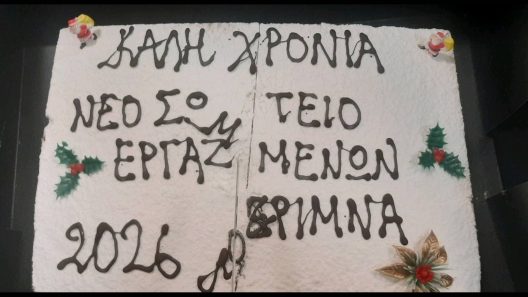 ΚΑΛΗ ΧΡΟΝΙΑ
ΝΕΟ ΣΩΜΤΕΙΟ
ΕΡΓΑΖΜΕΝΩΝ
ΒΡΙΜΝΑ
2026